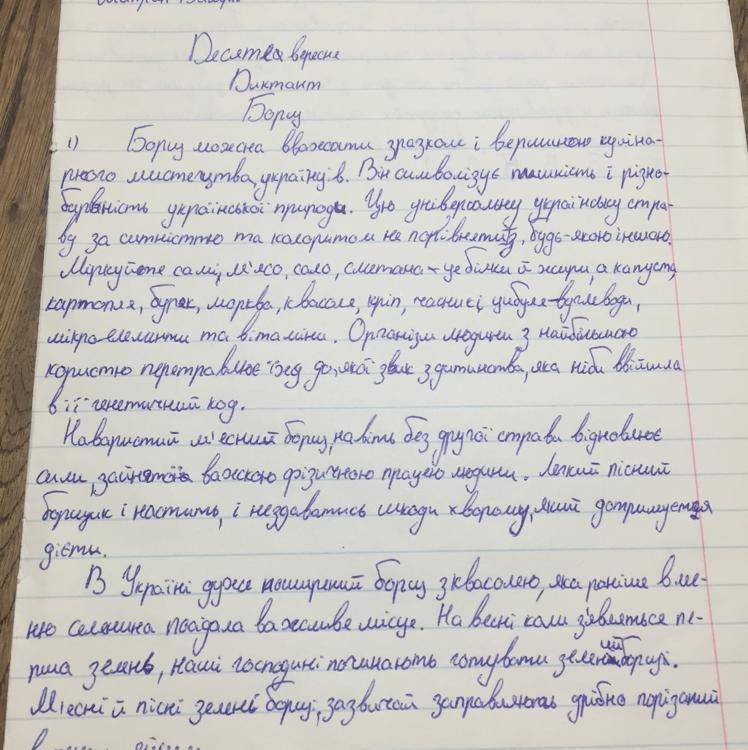 Десятка вересне
Диктант
Борщ
1) Борщ можна вважати зразком і вершиною куліна-
рного мистецтва, українців. Він символізує пишність і різно-
барвність української природи. Цю універсальну українську стра-
ву за ситністтю та колоритом не порівняти з, будь-якою іншою.
Міркуйте самі, м'ясо, сало, сметана - це білки й жири, а капуста,
картопля, буряк, морква, квасоля, кріп, часник і, цибуля - вуглеводи,
мікроелементи та вітаміни. Організм людини з найбільшою
користю перетравлює їжу до, якої звик з дитинства, яка ніби ввійшла
в її генетичний код.
Наваристий м'ясний борщ, навіть без другої страви відновлює
сили, важкою фізичною працею людини. Легкий пісний
борщик і наситить, і нездаватись шкоди хворому, який дотримується
дієти.
В Україні дуже поширений борщ з квасолею, яка раніше в ме-
ню селянина посідала важливе місце. На весні коли з'являться пе-
рша зелень, наші господині починають готувати зелений борщі.
М'ясні й пісні зелені борщі, зазвичай заправляють дрібно порізаний